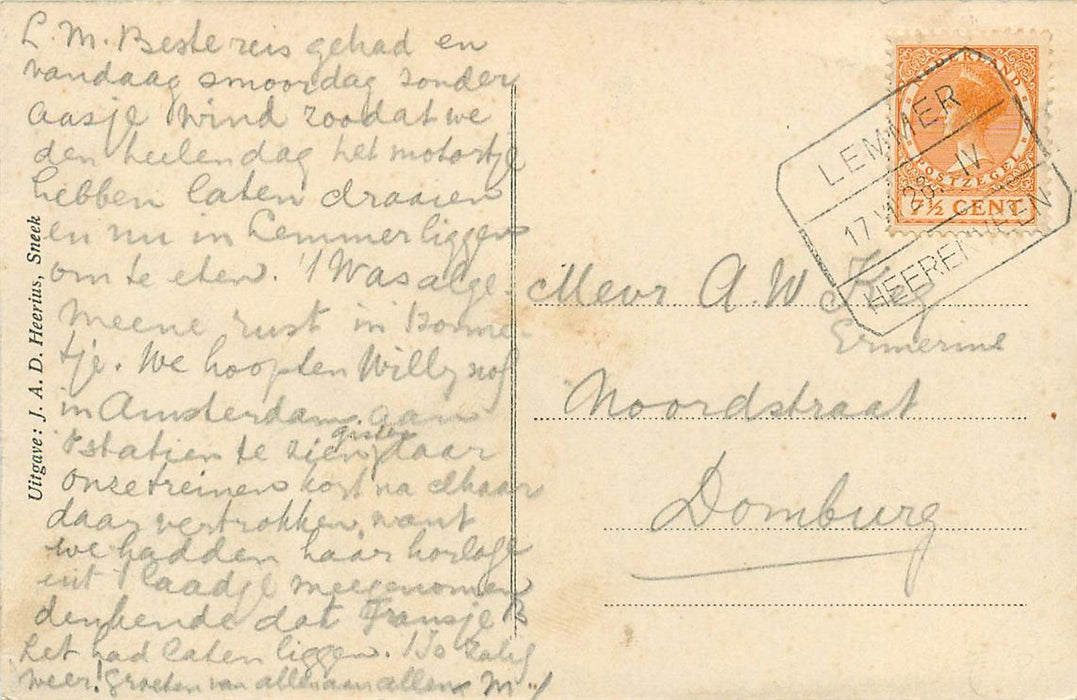 L. M. Beste reis gehad en
vandaag smoordag zonder
aasje wind zoodat we
den heelen dag het motortje
hebben laten draaien
en nu in Lemmer liggen
om te eten. 't Was alge-
meene rust in Bomme-
tje. We hoopten Willy nog
in Amsterdam aan
't statien te zien gister daar
onze treinen kort na elkaar
daar vertrokken, want
we hadden haar horloge
uit 't laadje meegenomen
denkende dat Fransje B
het had laten liggen. 't Is zalig
weer! Groeten van allen aan allen M
Uitgave: J. A. D. Heerius, Sneek
NEDERLAND
POSTZEGEL
7½ CENT
LEMMER
17 VI 28. IV
HEERENVEEN
Mevr A. W.
Ermerins
Noordstraat
Domburg